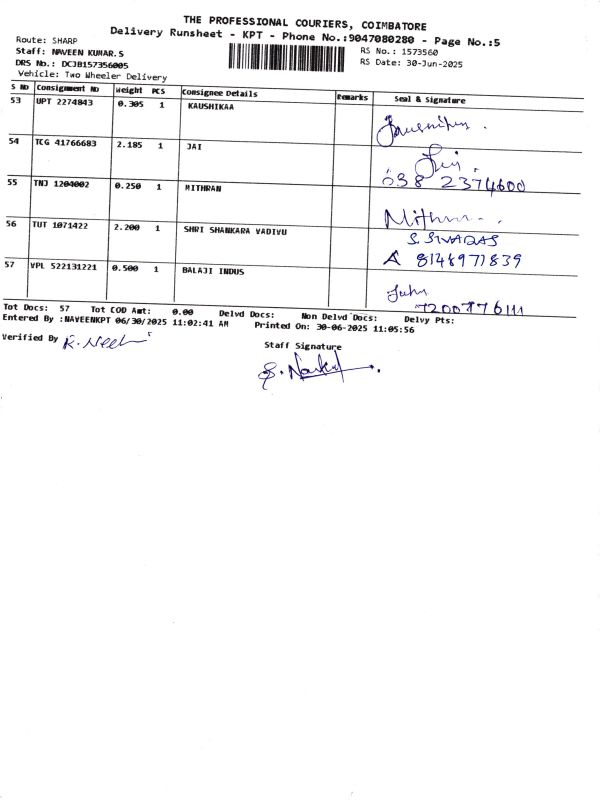 THE PROFESSIONAL COURIERS, COIMBATORE
Delivery Runsheet - KPT - Phone No.:9047080280 - Page No.:5
Route: SHARP
Staff: NAVEEN KUMAR.S RS No.: 1573560
DRS No.: DCJB157356005 RS Date: 30-Jun-2025
Vehicle: Two Wheeler Delivery
S No Consignment No Weight PCS Consignee Details Remarks Seal & Signature
53 UPT 2274843 0.305 1 KAUSHIKAA
54 TCG 41766683 2.185 1 JAI Jai
038 2374600
55 TNJ 1204002 0.250 1 MITHRAN Mithran
56 TUT 1071422 2.200 1 SHRI SHANKARA VADIVU S. SIVADAS
8148971839
57 VPL 522131221 0.500 1 BALAJI INDUS
7200776111
Tot Docs: 57 Tot COD Amt: 0.00 Delvd Docs: Non Delvd Docs: Delvy Pts:
Entered By :NAVEENKPT 06/30/2025 11:02:41 AM Printed On: 30-06-2025 11:05:56
Verified By
Staff Signature